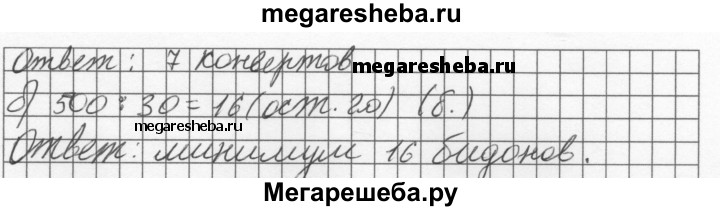 megaresheba.ru
Ответ: 7 конвертов
megaresheba.ru
б) 500 : 30 = 16 (ост. 20) (б.)
megaresheba.ru
Ответ: минимум 16 бидонов.
Мегарешеба.ру